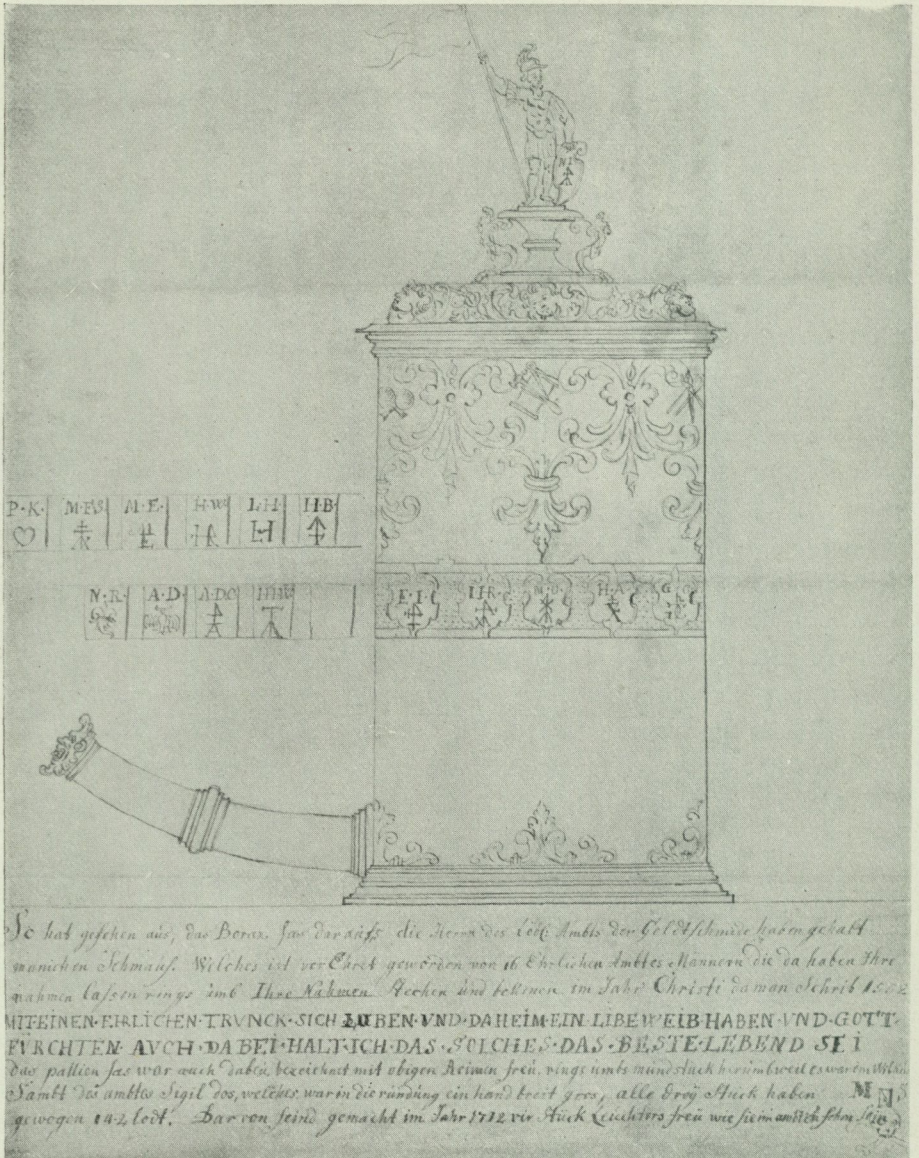 N I
P·K· M·F·S M·E· H·W L·H H·B
N·R· A·D·
E·I· H·R· H·A· G
So hat gesehen aus, das Borax fas daraufs die Herrn des Löbl: Ambts der Goldtschmide haben gehabt
mannichen Schmaufs. Welches ist verEhret geworden von 16 Ehrlichen Ambtes Männern die da haben Ihre
nahmen lassen rings umb Ihre Nahmen stechen und bekenen im Jahr Christi da man Schrib
MIT·EINEN·EHRLICHEN·TRVNCK·SICH LUBEN·VND·DAHEIM·EIN LIBE WEIB·HABEN·VND·GOTT·
FVRCHTEN·AVCH·DABEI·HALT·ICH·DAS·SOLCHES·DAS·BESTE·LEBEND SEI
das pallien fas war auch dabeu, bezeichnet mit obigen Reimen freu, rings umbs mundstuck herumb weil es waren
Sambt des ambtes Sigil dos, welches war in die ründung ein hand breit gros, alle dreÿ Stuck haben
gewogen 142 lodt. Dar von seind gemacht im Jahr 1712 vir Stuck Leuchters freü wie sie im
M N S